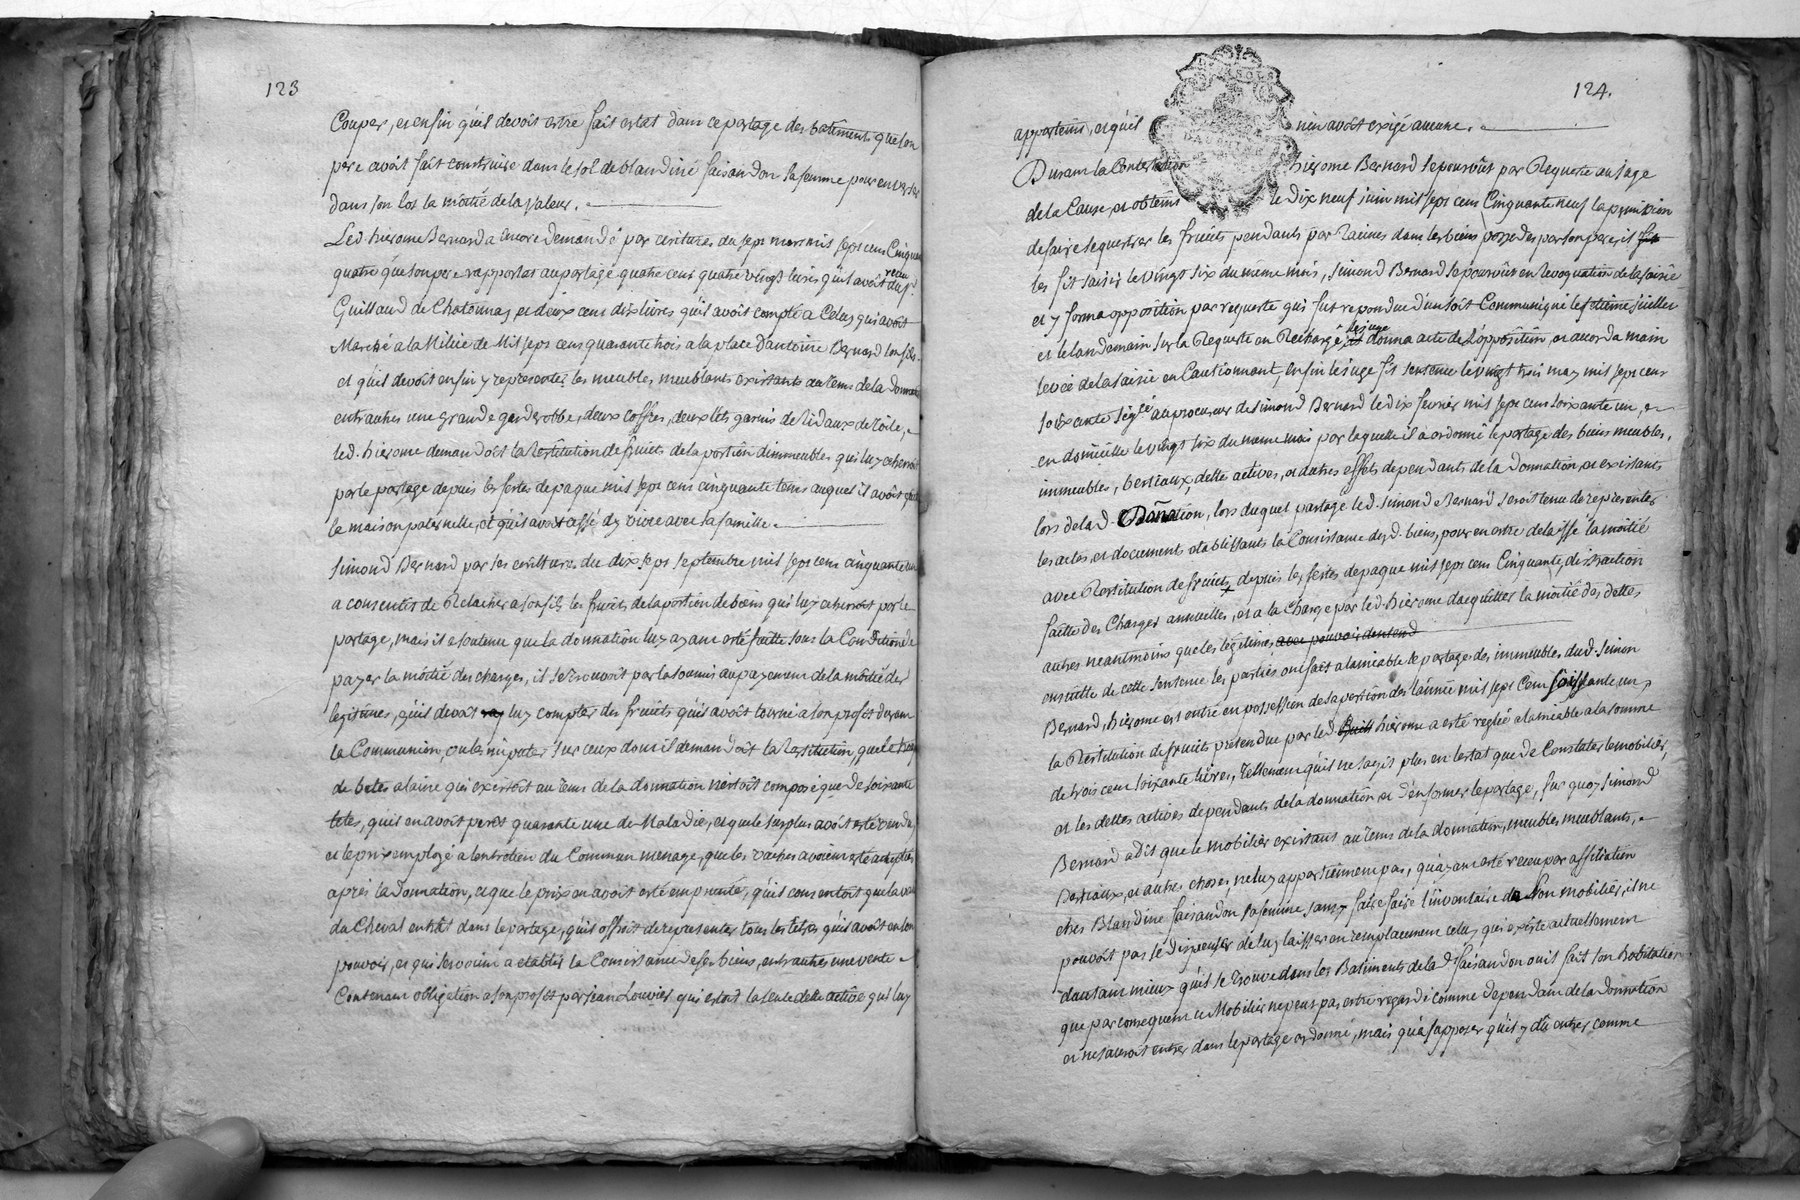 123
Couper, et enfin qu'il devoit estre fait estat dans ce partage des batiments que son
pere avoit fait construire dans le sol de blandine faisandon sa femme pour en verser
dans son lot la moitié de la valeur.
Led. hierome Bernard a encore demandé par ecritures du sept mars mil sept cens Cinquante
quatre que son pere rapportat au partage quatre cens quatre vingt livres qu'il avoit receu du sr.
Guillaud de Chatonnay et deux cens dix livres qu'il avoit compté a Celuy qui avoit
Marché a la Milice de Mil sept cens quarante trois a la place d'antoine Bernard son fils
et qu'il devoit enfin y representer les meubles, meublants existants au tems de la donnation
entr'autres une grande garderobbe, deux coffres, deux lits garnis de Ridaux de Toile,
led. hierome demandoit la Restitution de fruits de la portion d'immeubles qui luy echerroit
par le partage depuis les festes de paque mil sept cens cinquante tems auquel il avoit quitté
la maison paternelle, et qu'il avoit cessé d'y vivre avec sa famille.
Simond Bernard par ses ecritures du dix sept septembre mil sept cens cinquante un
a consenti de Relacher a son fils les fruits de la portion de biens qui luy echerroit par le
partage, mais il a soutenu que la donnation luy ayant esté faitte sous la Condition de
payer la moitié des charges, il se Trouvoit par la soumis au payement de la moitié des
legitimes, qu'il devoit luy compter des fruits qu'il avoit tourné a son profit durant
la Communion, ou les imputer sur ceux dont il demandoit la Restitution, que le
de betes a laine qui existoit au tems de la donnation n'estoit composé que de soixante
tetes, qu'il en avoit perdt quarante une de Maladie, et que le surplus avoit esté vendu
et le prix employé a l'entretien du Commun menage, que les vaches avoient esté achepté
après la Donnation, et que le prix en avoit esté emprunté, qu'il consentoit que la
du Cheval entrât dans le partage, qu'il offroit de representer tous les titres qu'il avoit en son
pouvoir, et qui servoient a etablir la Consistance de ses biens, entr'autres une vente
Contenant obligation a son profit par jean Louvier qui estoit la seule dette active qui luy
124.
appartenu, et qu'il n'en avoit exigé aucune.
Durant la Contestation hierome Bernard se pourvût par Requeste au juge
de la Cause, et obtient le Dix neuf juin mil sept cens Cinquante neuf la permission
de faire sequestrer les fruits pendants par racines dans les biens possedes par son pere, il
les fit saisir le vingt six du même mois, simond Bernard se pourvût en Revoquation de la saisie
et y forma opposition par requeste qui fut repondue d'un soit Communiqué le sixieme juillet
et le landemain sur la Requeste en Recharge, le juge donna acte de l'opposition, et accorda main
levée de la saisie en Cautionnant, enfin le juge fit sentence le vingt trois may mil sept cens
soixante sig.ée au procureur de simond Bernard le dix fevrier mil sept cens soixante un, et
en domicille le vingt six du meme mois par laquelle il a ordonné le partage des biens meubles,
immeubles, bestiaux, dette actives, et autres effets dependants de la Donnation et existants
lors de lad. Donation, lors duquel partage led. simond Bernard seroit tenu de representer
les actes et document etablissants la Consistance desd. biens, pour en estre delaissé la moitié
avec Restitution de fruits, depuis les festes de paque mil sept cens Cinquante, distraction
faitte des Charges annuelles, et a la Charge par led. hierome d'acquitter la moitié des dettes
autres neantmoins que les legitimes avec pouvoir
ensuitte de cette sentence les parties ont fait a l'amiable le partage des immeubles dud. simon
Bernard, hierome est entré en possession de sa portion des l'année mil sept Cens soixante un,
la Restitution de fruits pretendue par led. hierome a esté reglée a l'amiable a la somme
de trois cens soixante livres, Tellement qu'il ne s'agit plus en l'estat que de Constater le mobilier,
et les dettes actives dependants de la donnation et d'en former le partage, sur quoy simond
Bernard a dit que le mobilier existant au tems de la donnation, meubles meublants,
Bestiaux, et autres choses, ne luy appartiennent pas, qu'ayant esté receu par affiliation
ches Blandine faisandon sa femme sans y faire faire l'inventaire de son mobilier, il ne
pouvoit pas se dispenser de luy laisser en remplacement celuy qui existe actuellement
d'autant mieux qu'il se trouve dans les Batiments de lad. faisandon ou il fait son habitation
que par consequent ce Mobilier ne peut pas estre regardé comme dependant de la donnation
et ne sauroit entrer dans le partage ordonné, mais qu'a supposer qu'il y dû entrer comme